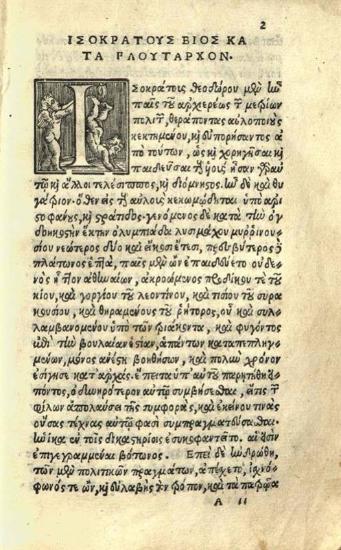 2
ΙΣΟΚΡΑΤΟΥΣ ΒΙΟΣ ΚΑ
ΤΑ ΠΛΟΥΤΑΡΧΟΝ.
ΙΣΟΚΡΑΤΗΣ Θεοδώρου μὲν ἦν
παῖς τοῦ ἀρχιερέως τῶν μετρίων
πολιτῶν, θεράποντας αὐλοποιοὺς
κεκτημένου, καὶ εὐπορήσαντος
ἀπὸ τούτων, ὡς καὶ χορηγῆσαι καὶ
παιδεῦσαι τοὺς υἱούς. ἦσαν γὰρ αὐ
τῷ καὶ ἄλλοι τελέσιππος, καὶ διόμνηστος. ἦν δὲ καὶ θυ
γάτριον. ὅθεν εἰς τοὺς αὐλοὺς κεκωμῴδηται ὑπὸ ἀρισ
τοφάνους, καὶ στράτιδος. γενόμενος δὲ κατὰ τὴν ὀγ
δοηκοστὴν ἕκτην ὀλυμπιάδα λυσιμάχου μυρρινου
σίου νεώτερος δύο καὶ εἴκοσι ἔτεσι, πρεσβύτερος δὲ
πλάτωνος ἑπτὰ, παῖς μὲν ὢν ἐπαιδεύετο οὐδε
νὸς ἧττον ἀθηναίων, ἀκροώμενος προδίκου τε τοῦ
κίου, καὶ γοργίου τοῦ λεοντίνου, καὶ τισίου τοῦ συρα
κουσίου, καὶ θηραμένους τοῦ ῥήτορος, οὗ καὶ συλ-
λαμβανομένου ὑπὸ τῶν τριάκοντα, καὶ φυγόντος
ἐπὶ τὴν βουλαίαν ἑστίαν, ἁπάντων καταπεπληγ
μένων, μόνος ἀνέστη βοηθήσων, καὶ πολὺν χρόνον
ἐσίγησε κατ' ἀρχάς. ἔπειτα ὑπ' αὐτοῦ παρῃτήθη
πόντος, ὀδυνηρότερον αὐτῷ συμβήσεσθαι, εἴ τις τῶν
φίλων ἀπολαύσει τῆς συμφορᾶς, καὶ ἐκείνου τινὰς
οὔσας τέχνας αὐτῷ φασὶ συμπραγματεύσασθαι.
ἡνίκα ἐν τοῖς δικαστηρίοις ἐσυκοφαντεῖτο. αἵ εἰσιν
ἐπιγεγραμμέναι βότωνος. Επεὶ δὲ ἠνδρώθη,
τῶν μὲν πολιτικῶν πραγμάτων ἀπέσχετο, ἰσχνό
φωνός τε ὢν, καὶ εὐλαβὴς τὸν τρόπον, καὶ τὰ πατρῷα
A ii